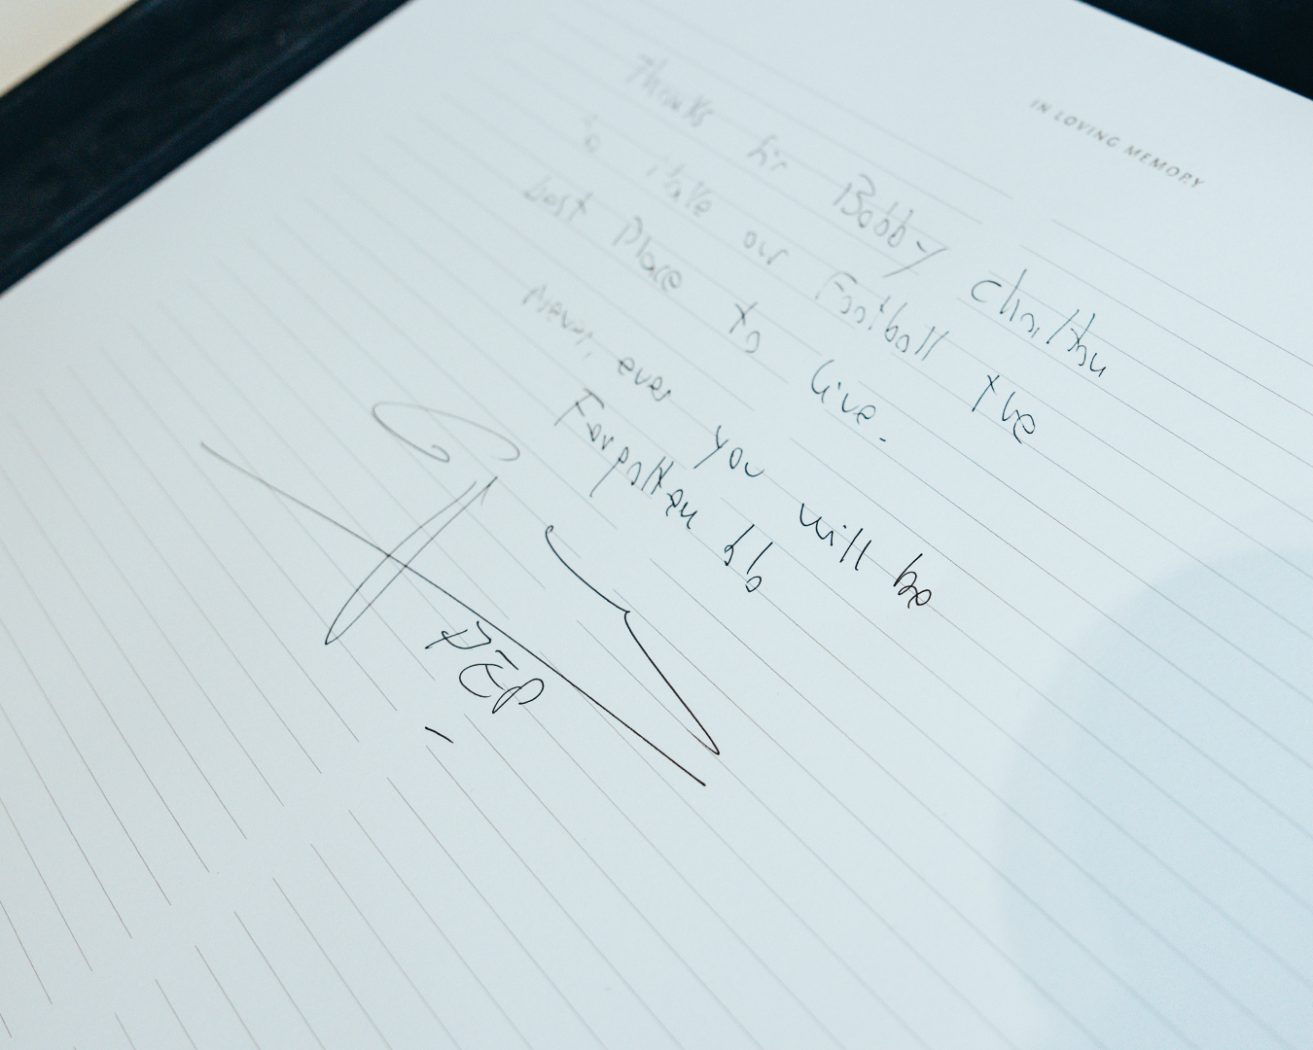 IN LOVING MEMORY
Thanks for Bobby Charlton
to Make our Football the
best Place to live.
Never, ever you will be
Forgotten
PEP